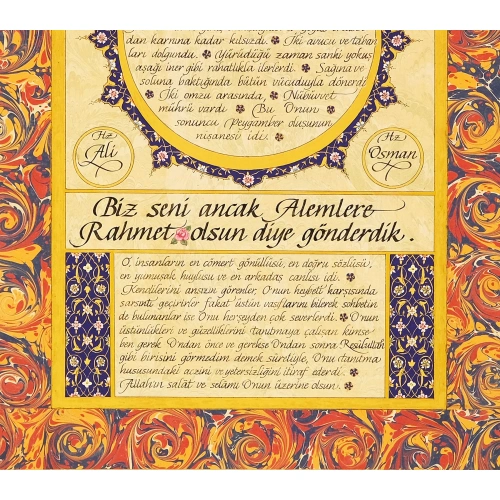 dan karnına kadar kılsızdı. İki avucu ve taban
ları dolgundu. Yürüdüğü zaman sanki yokuş
aşağı iner gibi rahatlıkla ilerlerdi. Sağına ve
soluna baktığında bütün vücuduyla dönerdi
İki omzu arasında, Nübüvvet
mührü vardı Bu Onun
sonuncu Peygamber oluşunun
nişanesi idi.
Hz
Ali
Hz
Osman
Biz seni ancak Alemlere
Rahmet olsun diye gönderdik.
O, insanların en cömert gönüllüsü, en doğru sözlüsü,
en yumuşak huylusu ve en arkadaş canlısı idi.
Kendilerini ansızın görenler, Onun heybeti karşısında
sarsıntı geçirirler fakat üstün vasıflarını bilerek sohbetin
de bulunanlar ise Onu herşeyden çok severlerdi. Onun
üstünlükleri ve güzelliklerini tanıtmaya çalışan kimse
ben gerek Ondan önce ve gerekse Ondan sonra Resûlullah
gibi birisini görmedim demek sûretiyle, Onu tanıtma
hususundaki aczini ve yetersizliğini itiraf ederdi.
Allah'ın salât ve selâmı Onun üzerine olsun.